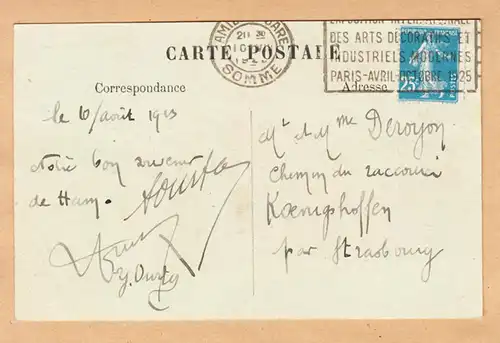 CARTE POSTALE
SOMME
EXPOSITION INTERNATIONALE
DES ARTS DÉCORATIFS ET
INDUSTRIELS MODERNES
PARIS-AVRIL-OCTOBRE 1925
25
Correspondance
Adresse
le 6/août 1925
Notre bon souvenir
de Ham.
Mr et Mme Deroyon
Chemin du raccourci
Kœnigshoffen
par Strasbourg